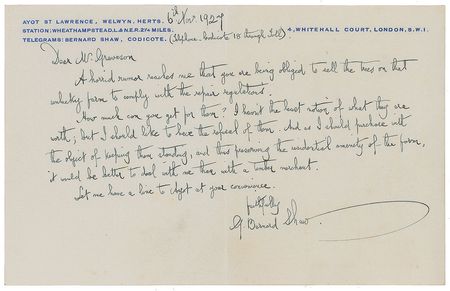 AYOT ST LAWRENCE, WELWYN, HERTS. 6th Nov. 1927
STATION: WHEATHAMPSTEAD, L. & N.E.R. 2¼ MILES. (Telephone: Codicote 18 through Toll) 4, WHITEHALL COURT, LONDON, S.W.1.
TELEGRAMS: BERNARD SHAW, CODICOTE.
Dear Mr Graveson
A horrid rumor reaches me that you are being obliged to sell the trees on that
unlucky farm to comply with the repair regulations.
How much can you get for them? I havnt the least notion of what they are
worth; but I should like to have the refusal of them. And as I should purchase with
the object of keeping them standing, and thus preserving the residential amenity of the farm,
it would be better to deal with me than with a timber merchant.
Let me have a line to Ayot at your convenience.
faithfully
G. Bernard Shaw